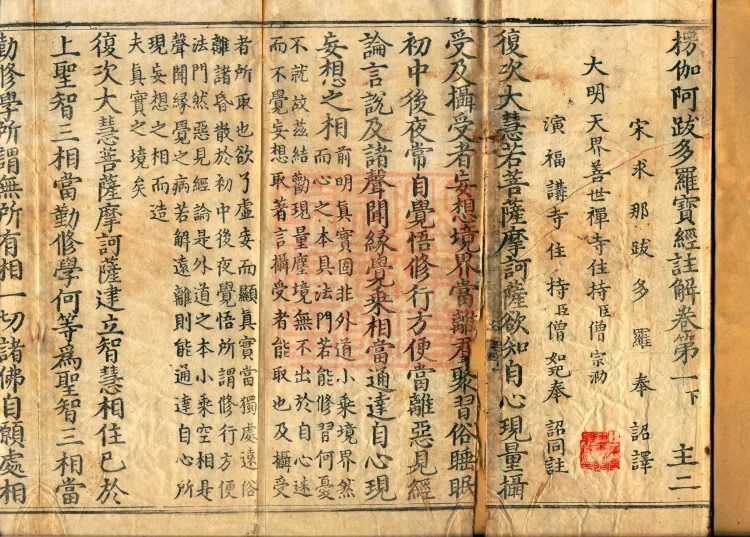 楞伽阿跋多羅寶經註解卷第一下 主二
宋求那跋多羅奉 詔譯
大明天界善世禪寺住持臣僧宗泐
演福講寺住持臣僧如玘奉 詔同註
復次大慧若菩薩摩訶薩欲知自心現量攝
受及攝受者妄想境界當離羣聚習俗睡眠
初中後夜常自覺悟修行方便當離惡見經
論言說及諸聲聞緣覺乘相當通達自心現
妄想之相前明真實固非外道小乘境界然
而心之本具法門若能修習何憂
不就故茲結勸現量麈境無不出於自心迷
而不覺妄想取著言攝受者能取也及攝受
者所取也欲了虛妄而顯真實當獨處遠俗
離諸昏散於初中後夜覺悟所謂修行方便
法門然惡見經論是外道之本小乘空相是
聲聞緣覺之病若解遠離則能通達自心所
現妄想之相而造
夫真實之境矣
復次大慧菩薩摩訶薩建立智慧相住已於
上聖智三相當勤修學何等為聖智三相當
勤修學所謂無所有相一切諸佛自願處相